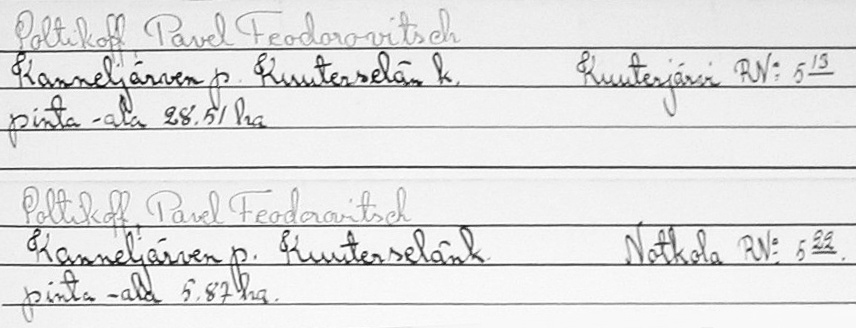 Poltikoff, Pavel Feodorovitsch
Kanneljärven p. Kuuterselän k. Kuuterjärvi RN: 5 15
pinta-ala 28.51 ha
Poltikoff, Pavel Feodorovitsch
Kanneljärven p. Kuuterselän k. Notkola RN: 5 22.
pinta-ala 5.87 ha.